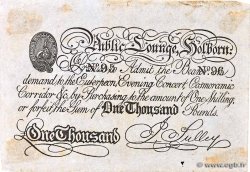 Public Lounge, Holborn.
No. 95 Admit the Bearer No. 96
demand to the European Evening Concert, Cosmoramic
Corridor &c, by Purchasing to the amount of One Shilling,
or forfeit the Sum of One Thousand Pounds.
One Thousand